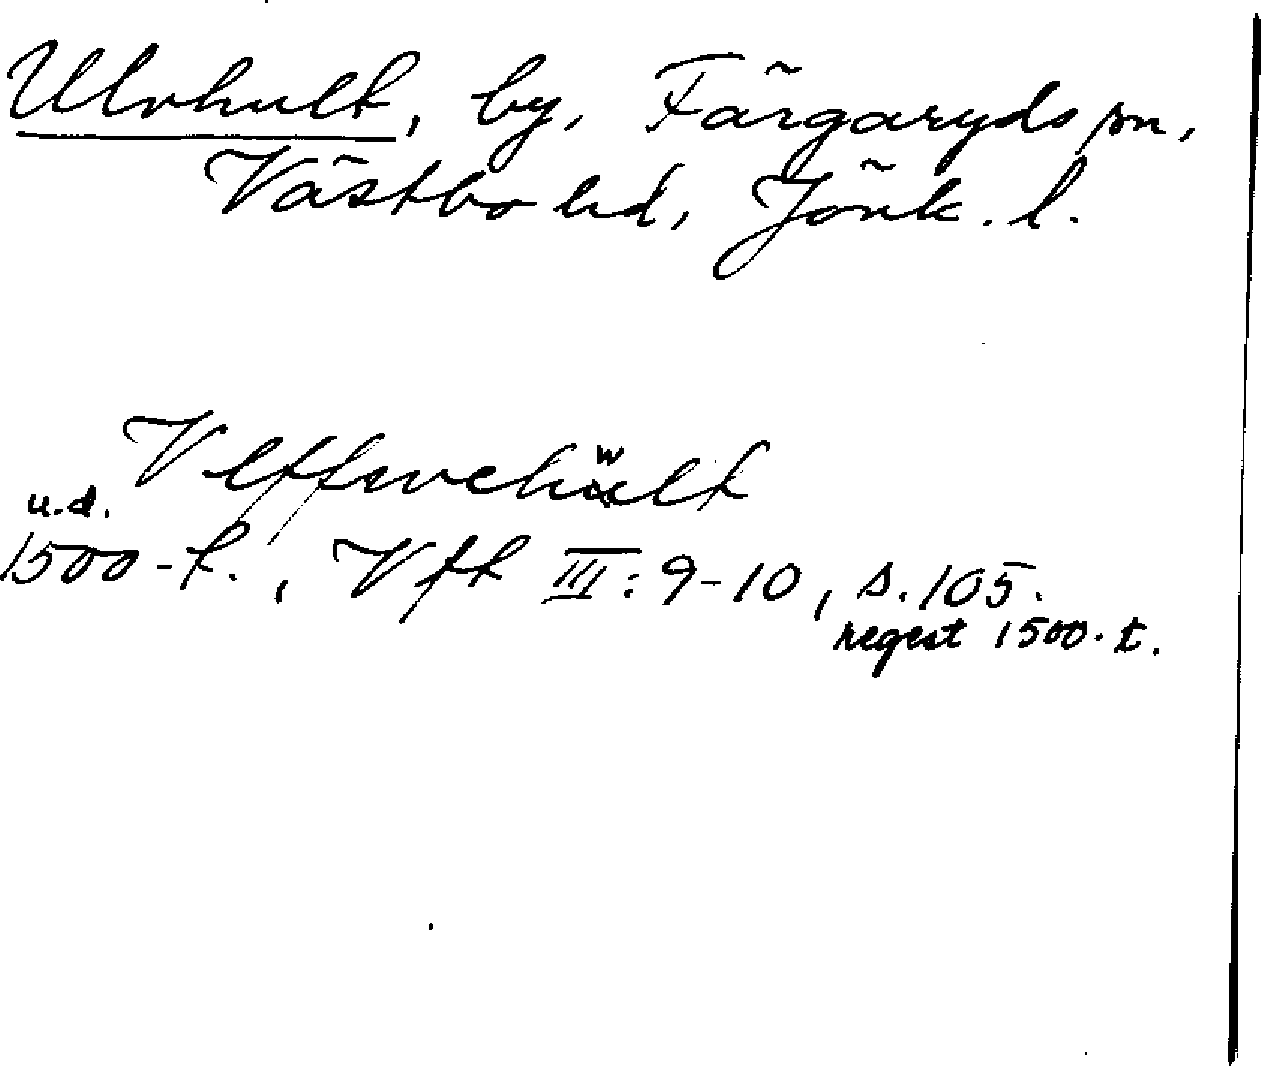 Ulvhult, by, Färgaryds sn,
Västbo hd, Jönk. l.
Vlffwehwlt
u.d.
1500-t., Vfk III: 9-10, s. 105.
regest 1500-t.